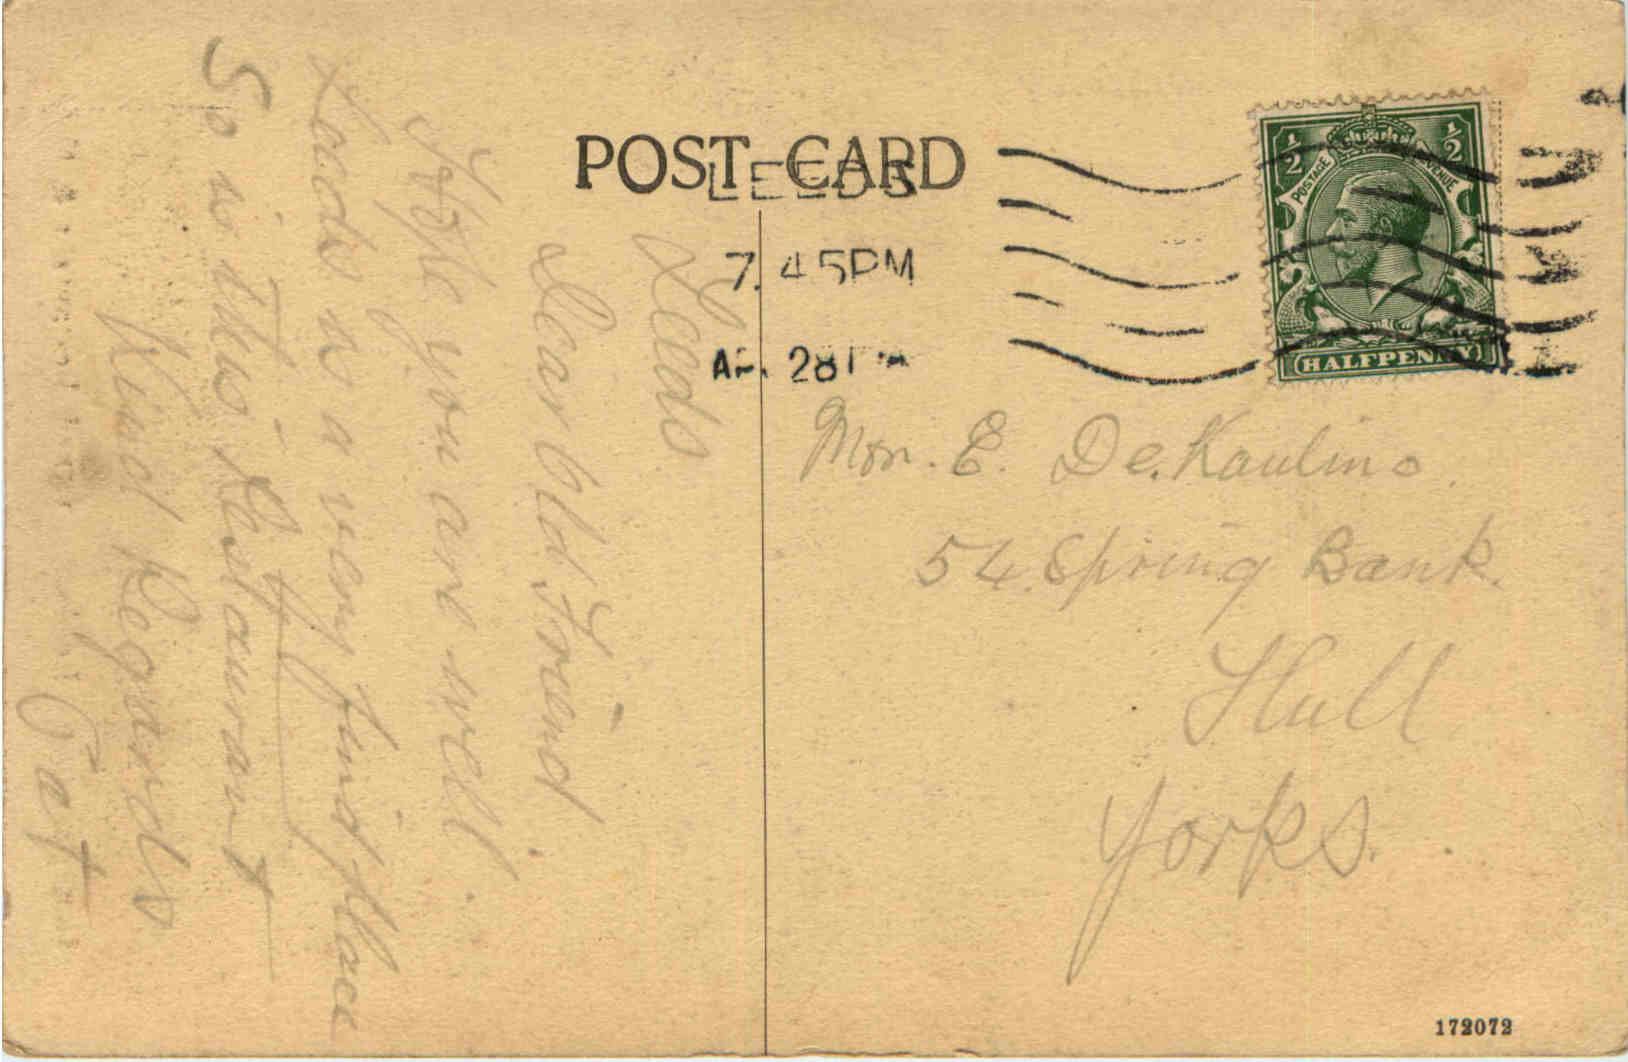 POST CARD
LEEDS
7.45PM
AP. 28
½ ½
POSTAGE REVENUE
HALFPENNY
Leeds
Dear Old Friend
Hope you are well.
Leeds is a very find place
So is this Restaurant
Kind Regards
Pat
Mon. E. De. Kaulino
54. Spring Bank.
Hull
Yorks.
172072